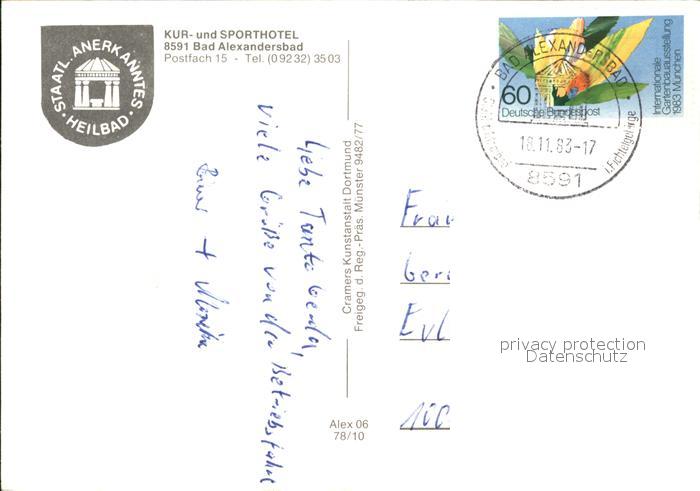 STAATL. ANERKANNTES
HEILBAD
KUR- und SPORTHOTEL
8591 Bad Alexandersbad
Postfach 15 - Tel. (0 92 32) 35 03
60
Deutsche Bundespost
Internationale
Gartenbauausstellung
1983 München
BAD ALEXANDERSBAD
18.11.83-17
i. Fichtelgebirge
8591
Liebe Tante
Viele Grüße von der Betriebsfahrt
+ Monika
Cramers Kunstanstalt Dortmund
Freigeg. d. Reg.-Präs. Münster 9482/77
Alex 06
78/10
Frau
Evl
100
privacy protection
Datenschutz